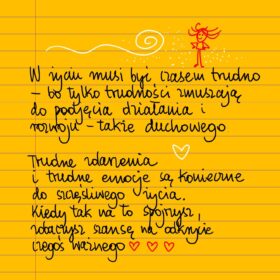 W życiu musi być czasem trudno
– bo tylko trudności zmuszają
do podjęcia działania i
rozwoju – także duchowego
Trudne zdarzenia
i trudne emocje są konieczne
do szczęśliwego życia.
Kiedy tak na to spojrzysz,
zobaczysz szansę na odkrycie
czegoś ważnego